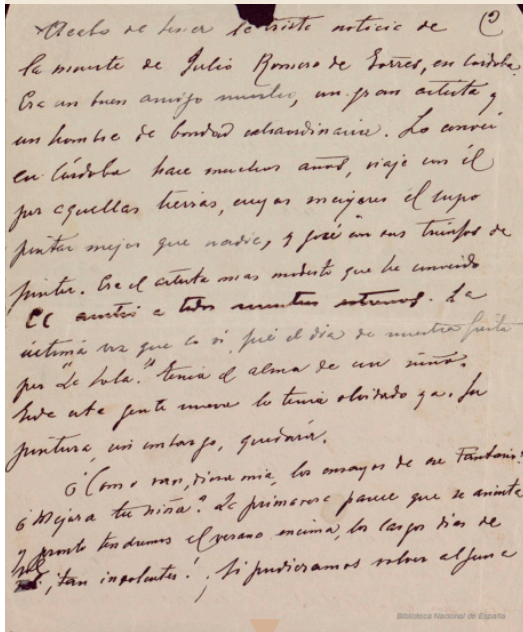 (2)
Acabo de tener la triste noticia de
la muerte de Julio Romero de Torres, en Córdoba.
Era un buen amigo nuestro, un gran artista y
un hombre de bondad extraordinaria. Lo conocí
en Córdoba hace muchos años, viajé con él
por aquellas tierras, cuyas mujeres él supo
pintar mejor que nadie, y gocé con sus triunfos de
pintor. Era el artista mas modesto que he conocido
El asistió a todos nuestros estrenos. La
última vez que lo vi fué el dia de nuestra fiesta
por "La Lola." Tenia el alma de un niño.
Toda esta gente nueva lo tenia olvidado ya. Su
pintura, sin embargo, quedará.
¿Como van, diosa mia, los ensayos de ese Fantasma?
¿Mejora tu niña? La primavera parece que se anima
y pronto tendremos el verano encima, los largos dias de
sol, ¡tan insolentes! ¡Si pudieramos volver alguna
Biblioteca Nacional de España